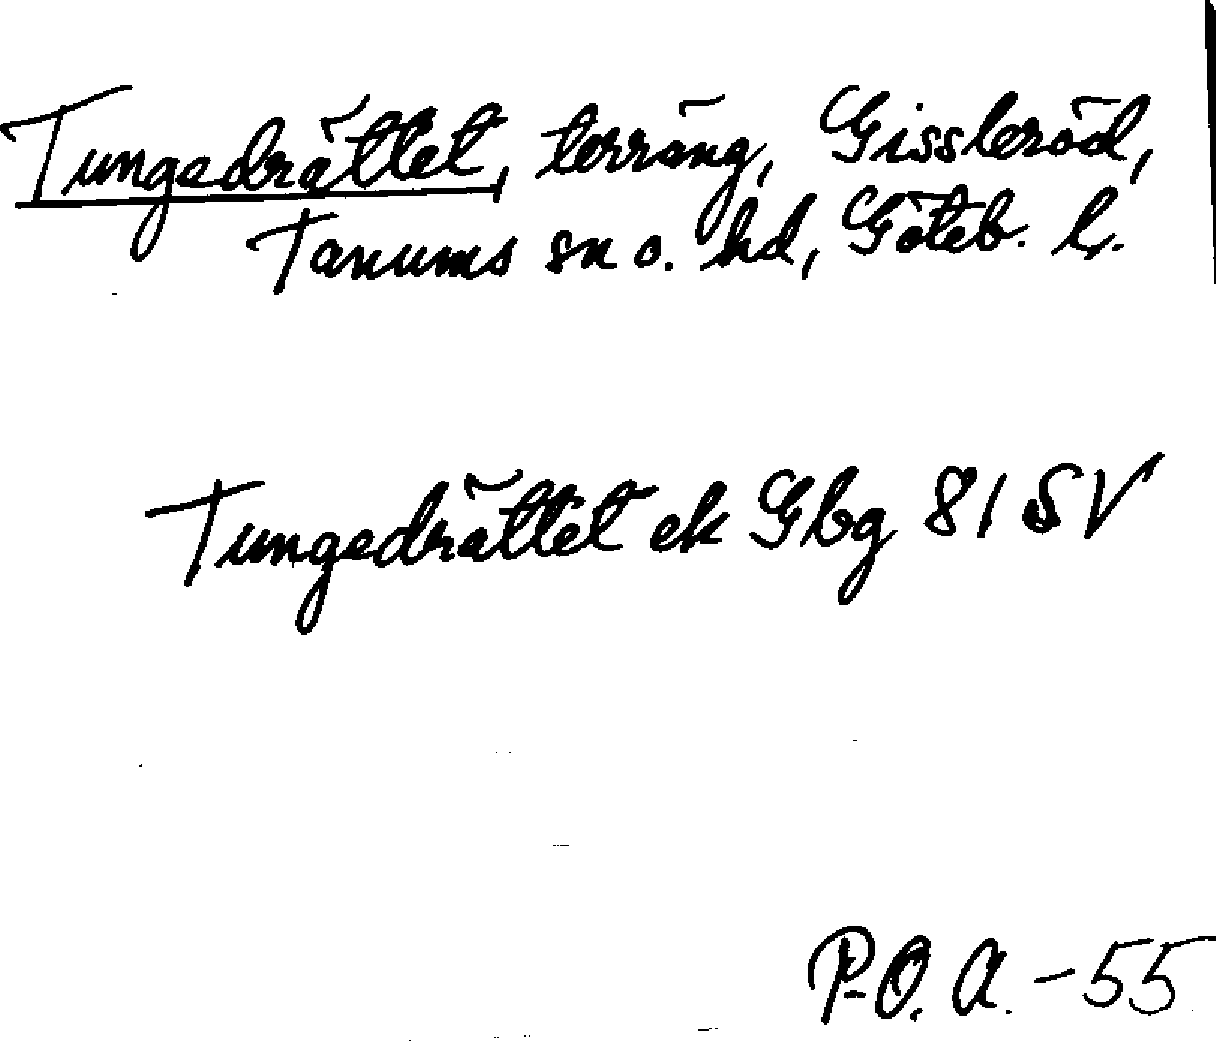 Tungedrättet, terräng, Gissleröd,
Tanums sn o. hd, Göteb. l.
Tungedrättet ek Gbg 81 SV
P-O. A. -55